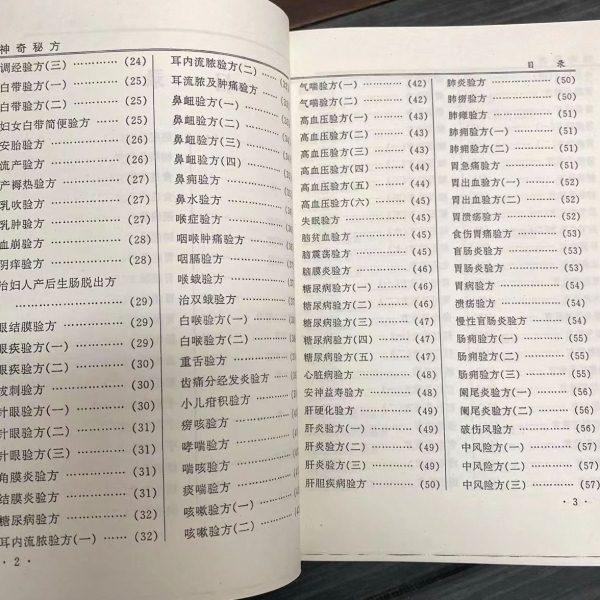 神奇秘方
调经验方(三) ············ (24)
白带验方(一) ············ (25)
白带验方(二) ············ (25)
妇女白带简便验方 ······ (25)
安胎验方 ············ (26)
流产验方 ············ (26)
产褥热验方 ············ (27)
乳吹验方 ············ (27)
乳肿验方 ············ (27)
血崩验方 ············ (28)
阴痒验方 ············ (28)
治妇人产后生肠脱出方
············ (29)
眼结膜验方 ············ (29)
眼疾验方(一) ············ (29)
眼疾验方(二) ············ (30)
拔刺验方 ············ (30)
针眼验方(一) ············ (30)
针眼验方(二) ············ (31)
针眼验方(三) ············ (31)
角膜炎验方 ············ (31)
结膜炎验方 ············ (31)
糖尿病验方 ············ (32)
耳内流脓验方(一) ······ (32)
· 2 ·
耳内流脓验方(二) ······
耳流脓及肿痛验方 ······
鼻衄验方(一) ············
鼻衄验方(二) ············
鼻衄验方(三) ············
鼻衄验方(四) ············
鼻痈验方 ············
鼻水验方 ············
喉症验方 ············
咽喉肿痛验方 ············
咽膈验方 ············
喉蛾验方 ············
治双蛾验方 ············
白喉验方(一) ············
白喉验方(二) ············
重舌验方 ············
齿痛分经发炎验方 ······
小儿疳积验方 ············
痨咳验方 ············
哮喘验方 ············
喘咳验方 ············
痰喘验方 ············
咳嗽验方(一) ············
咳嗽验方(二) ············
目 录
气喘验方(一) ············ (42)
气喘验方(二) ············ (42)
高血压验方(一) ········· (43)
高血压验方(二) ········· (43)
高血压验方(三) ········· (43)
高血压验方(四) ········· (44)
高血压验方(五) ········· (44)
高血压验方(六) ········· (45)
失眠验方 ············ (45)
脑贫血验方 ············ (45)
脑震荡验方 ············ (45)
脑膜炎验方 ············ (46)
糖尿病验方(一) ········· (46)
糖尿病验方(二) ········· (46)
糖尿病验方(三) ········· (47)
糖尿病验方(四) ········· (47)
糖尿病验方(五) ········· (47)
心脏病验方 ············ (48)
安神益寿验方 ············ (48)
肝硬化验方 ············ (49)
肝炎验方(一) ············ (49)
肝炎验方(二) ············ (49)
肝炎验方(三) ············ (49)
肝胆疾病验方 ············ (50)
肺炎验方 ············ (50)
肺痨验方 ············ (50)
肺瘫验方 ············ (51)
肺痈验方(一) ············ (51)
肺痈验方(二) ············ (51)
胃急痛验方 ············ (51)
胃出血验方(一) ········· (52)
胃出血验方(二) ········· (52)
胃溃疡验方 ············ (52)
食伤胃痛验方 ············ (53)
盲肠炎验方 ············ (53)
胃肠炎验方 ············ (53)
胃病验方 ············ (54)
溃疡验方 ············ (54)
慢性盲肠炎验方 ········· (54)
肠痈验方(一) ············ (55)
肠痈验方(二) ············ (55)
肠痈验方(三) ············ (55)
阑尾炎验方(一) ········· (56)
阑尾炎验方(二) ········· (56)
破伤风验方 ············ (56)
中风险方(一) ············ (57)
中风险方(二) ············ (57)
中风险方(三) ············ (57)
· 3 ·